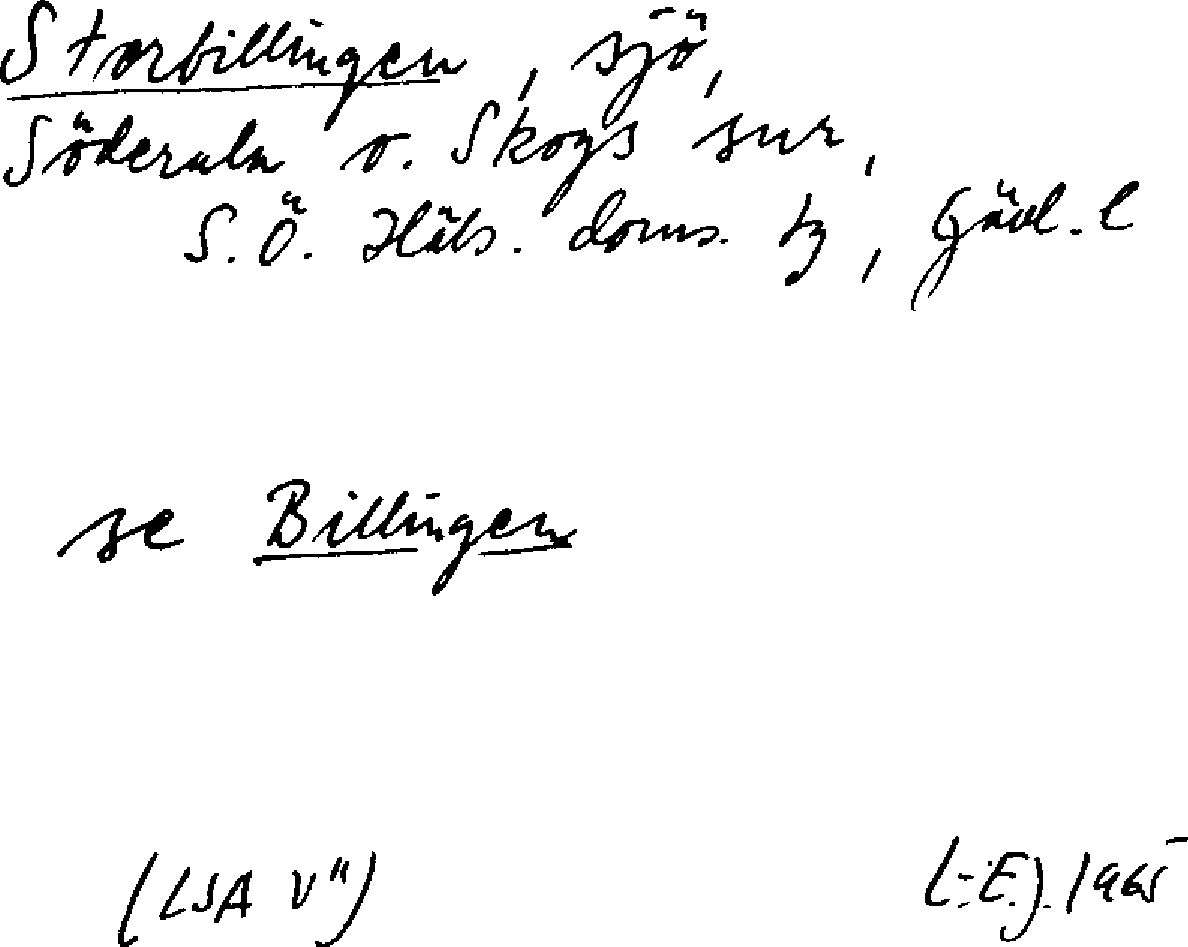 Storbillingen, sjö,
Söderala o. Skogs snr,
S.Ö. Häls. doms. tg, Gävl. l
se Billingen
(LSA V")
L-E.J. 1965